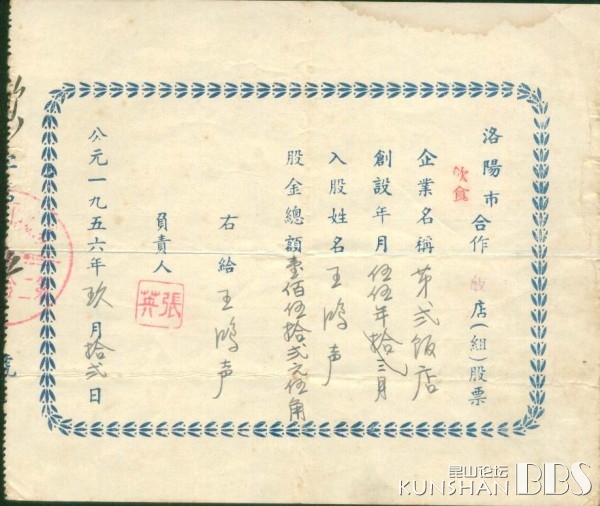 洛陽市合作飯店(組)股票
飲食
企業名稱 第弍飯店
創設年月 伍伍年拾二月
入股姓名 王鴻声
股金總額壹佰伍拾弍元伍角
右給王鴻声
負責人 張英
公元一九五六年玖月拾弍日
昆山论坛
KUNSHAN BBS